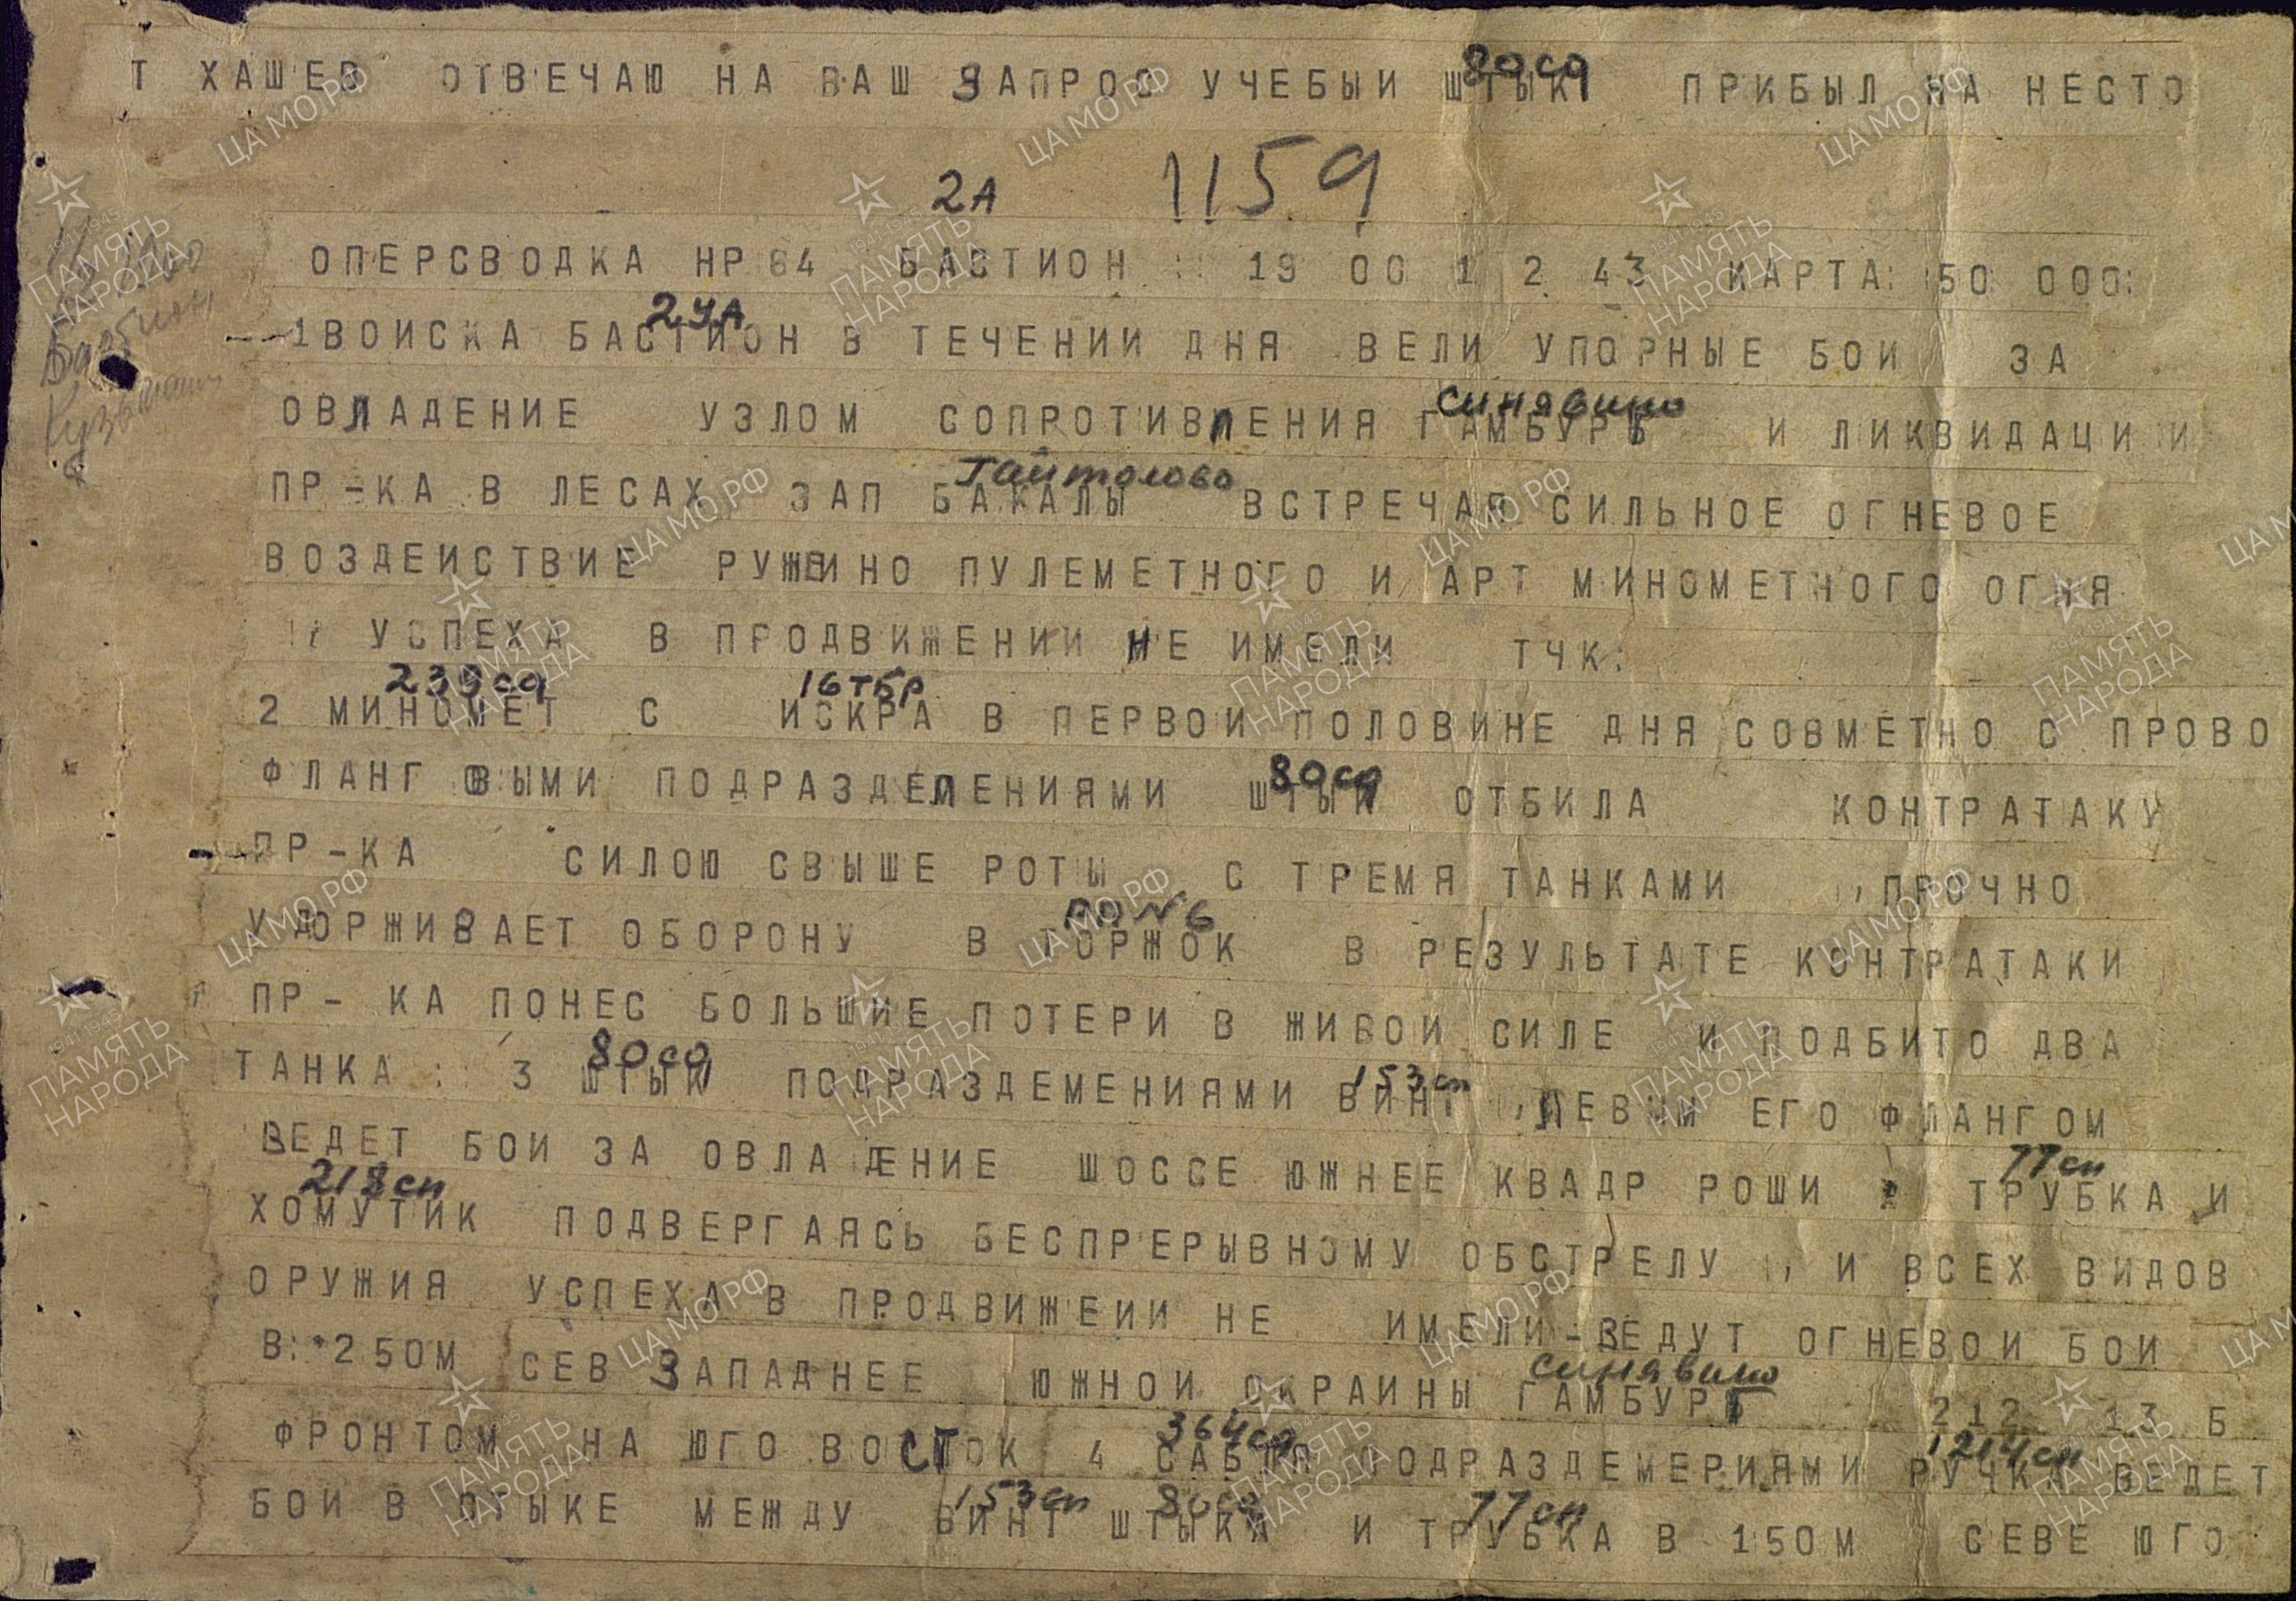 80сд
Т ХАШЕВ ОТВЕЧАЮ НА ВАШ ЗАПРОС УЧЕБЫИ ШТЫК ПРИБЫЛ НА НЕСТО
2А 1159
ОПЕРСВОДКА НР 64 БАСТИОН : 19 00 1 2 43 КАРТА: 50 000:
2УА
1ВОИСКА БАСТИОН В ТЕЧЕНИИ ДНЯ ВЕЛИ УПОРНЫЕ БОИ ЗА
Синявино
ОВЛАДЕНИЕ УЗЛОМ СОПРОТИВЛЕНИЯ ГАМБУРГ И ЛИКВИДАЦИИ
Гайтолово
ПР-КА В ЛЕСАХ ЗАП БАКАЛЫ ВСТРЕЧАЯ СИЛЬНОЕ ОГНЕВОЕ
ВОЗДЕИСТВИЕ РУЖЕИНО ПУЛЕМЕТНОГО И АРТ МИНОМЕТНОГО ОГНЯ
УСПЕХА В ПРОДВИЖЕНИИ НЕ ИМЕЛИ ТЧК:
239сд 16тбр
2 МИНОМЕТ С ИСКРА В ПЕРВОИ ПОЛОВИНЕ ДНЯ СОВМЕТНО С ПРОВО
80сд
ФЛАНГОВЫМИ ПОДРАЗДЕЛЕНИЯМИ ШТЫК ОТБИЛА КОНТРАТАКУ
ПР-КА СИЛОЮ СВЫШЕ РОТЫ С ТРЕМЯ ТАНКАМИ , ПРОЧНО
РП№6
УДОРЖИВАЕТ ОБОРОНУ В ТОРЖОК В РЕЗУЛЬТАТЕ КОНТРАТАКИ
ПР- КА ПОНЕС БОЛЬШИЕ ПОТЕРИ В ЖИВОИ СИЛЕ И ПОДБИТО ДВА
80сд 153сп
ТАНКА : 3 ШТЫК ПОДРАЗДЕМЕНИЯМИ ВИНТ , ЛЕВЫМ ЕГО ФЛАНГОМ
77сп
ВЕДЕТ БОИ ЗА ОВЛАДЕНИЕ ШОССЕ ЮЖНЕЕ КВАДР РОШИ ТРУБКА И
218сп
ХОМУТИК ПОДВЕРГАЯСЬ БЕСПРЕРЫВНОМУ ОБСТРЕЛУ , И ВСЕХ ВИДОВ
ОРУЖИЯ УСПЕХА В ПРОДВИЖЕИИ НЕ ИМЕЛИ-ВЕДУТ ОГНЕВОИ БОИ
Синявино
В: 250М СЕВ ЗАПАДНЕЕ ЮЖНОИ ОКРАИНЫ ГАМБУРГ 212 13 Б
364сд 1214сп
ФРОНТОМ НА ЮГО ВОСТОК 4 САБЛЯ ПОДРАЗДЕМЕРИЯМИ РУЧКА ВЕДЕТ
153сп 80сд 77сп
БОИ В СТЫКЕ МЕЖДУ ВИНТ ШТЫКА И ТРУБКА В 150М СЕВЕ ЮГО